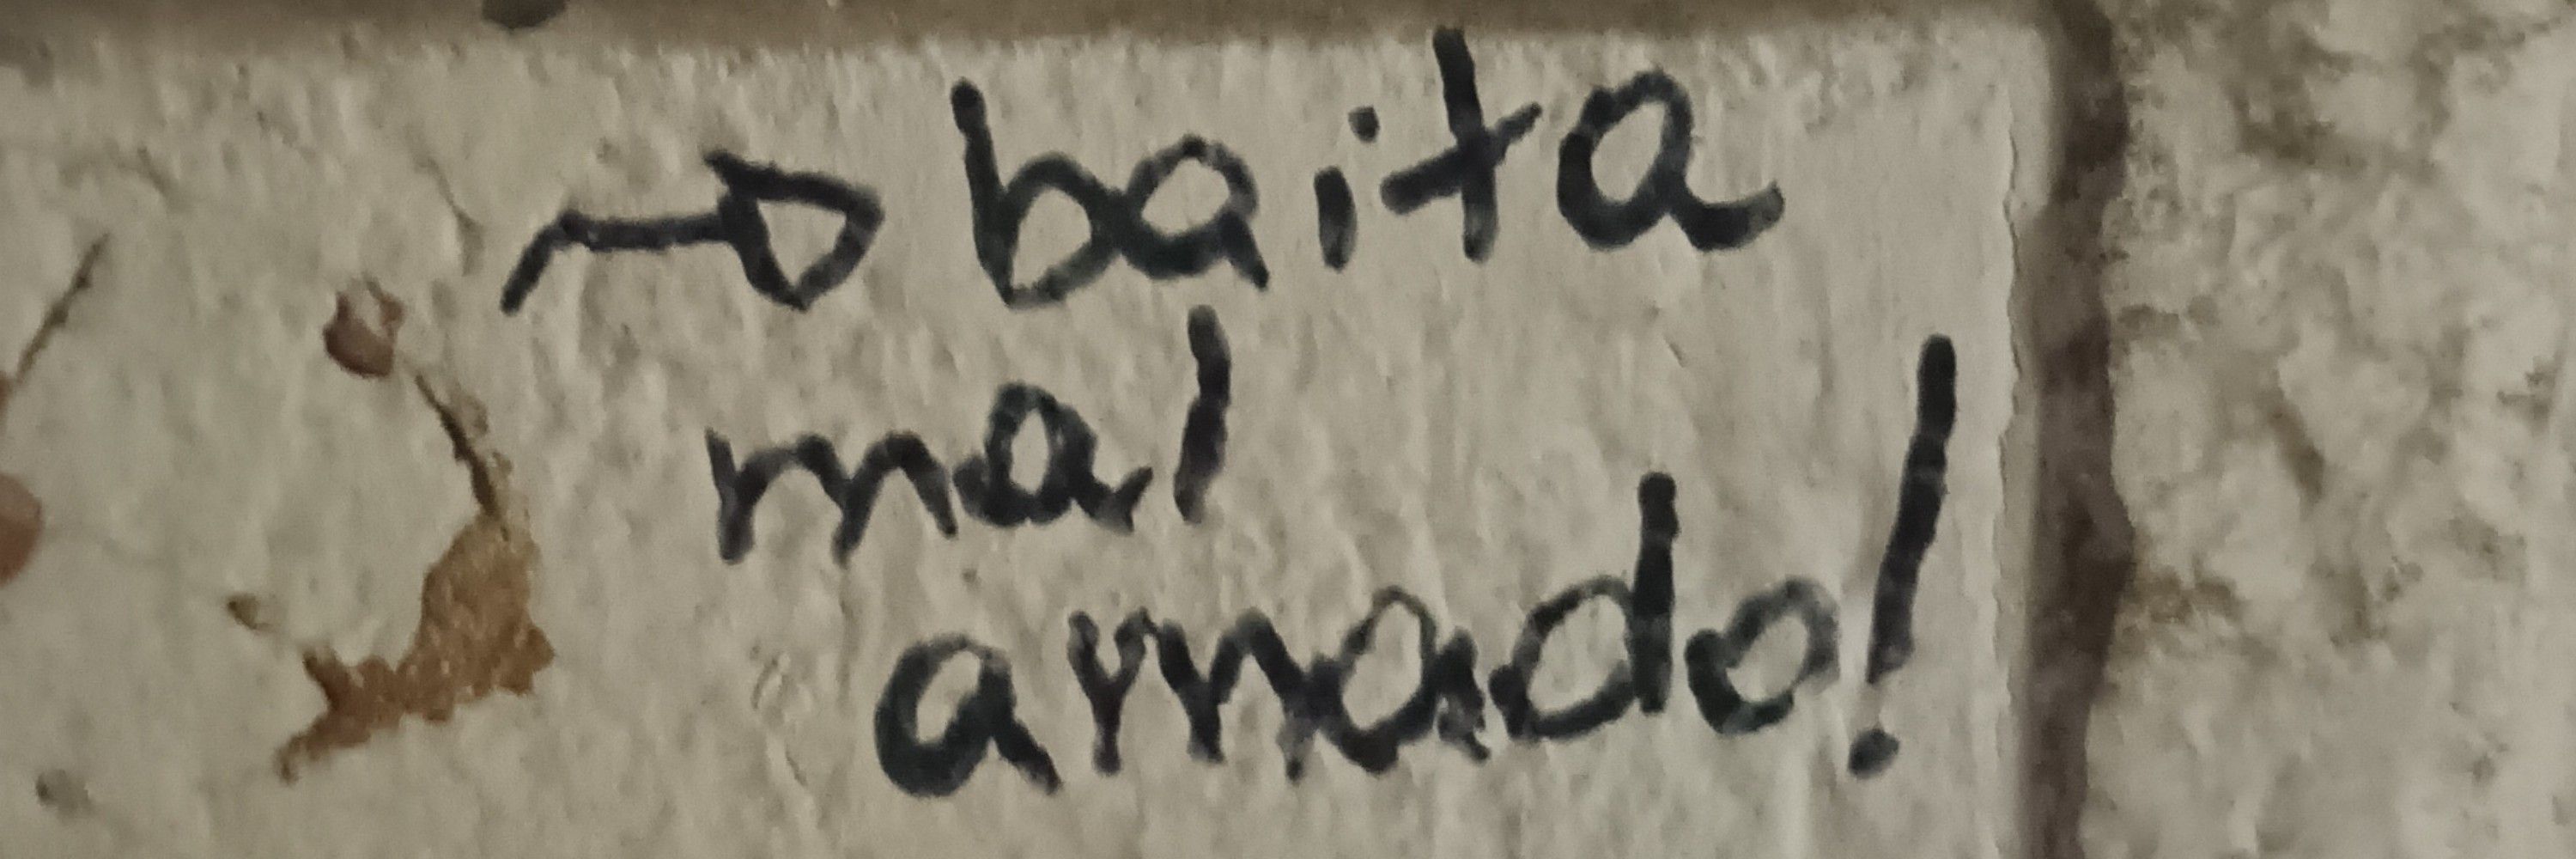 → baita
mal
amado!